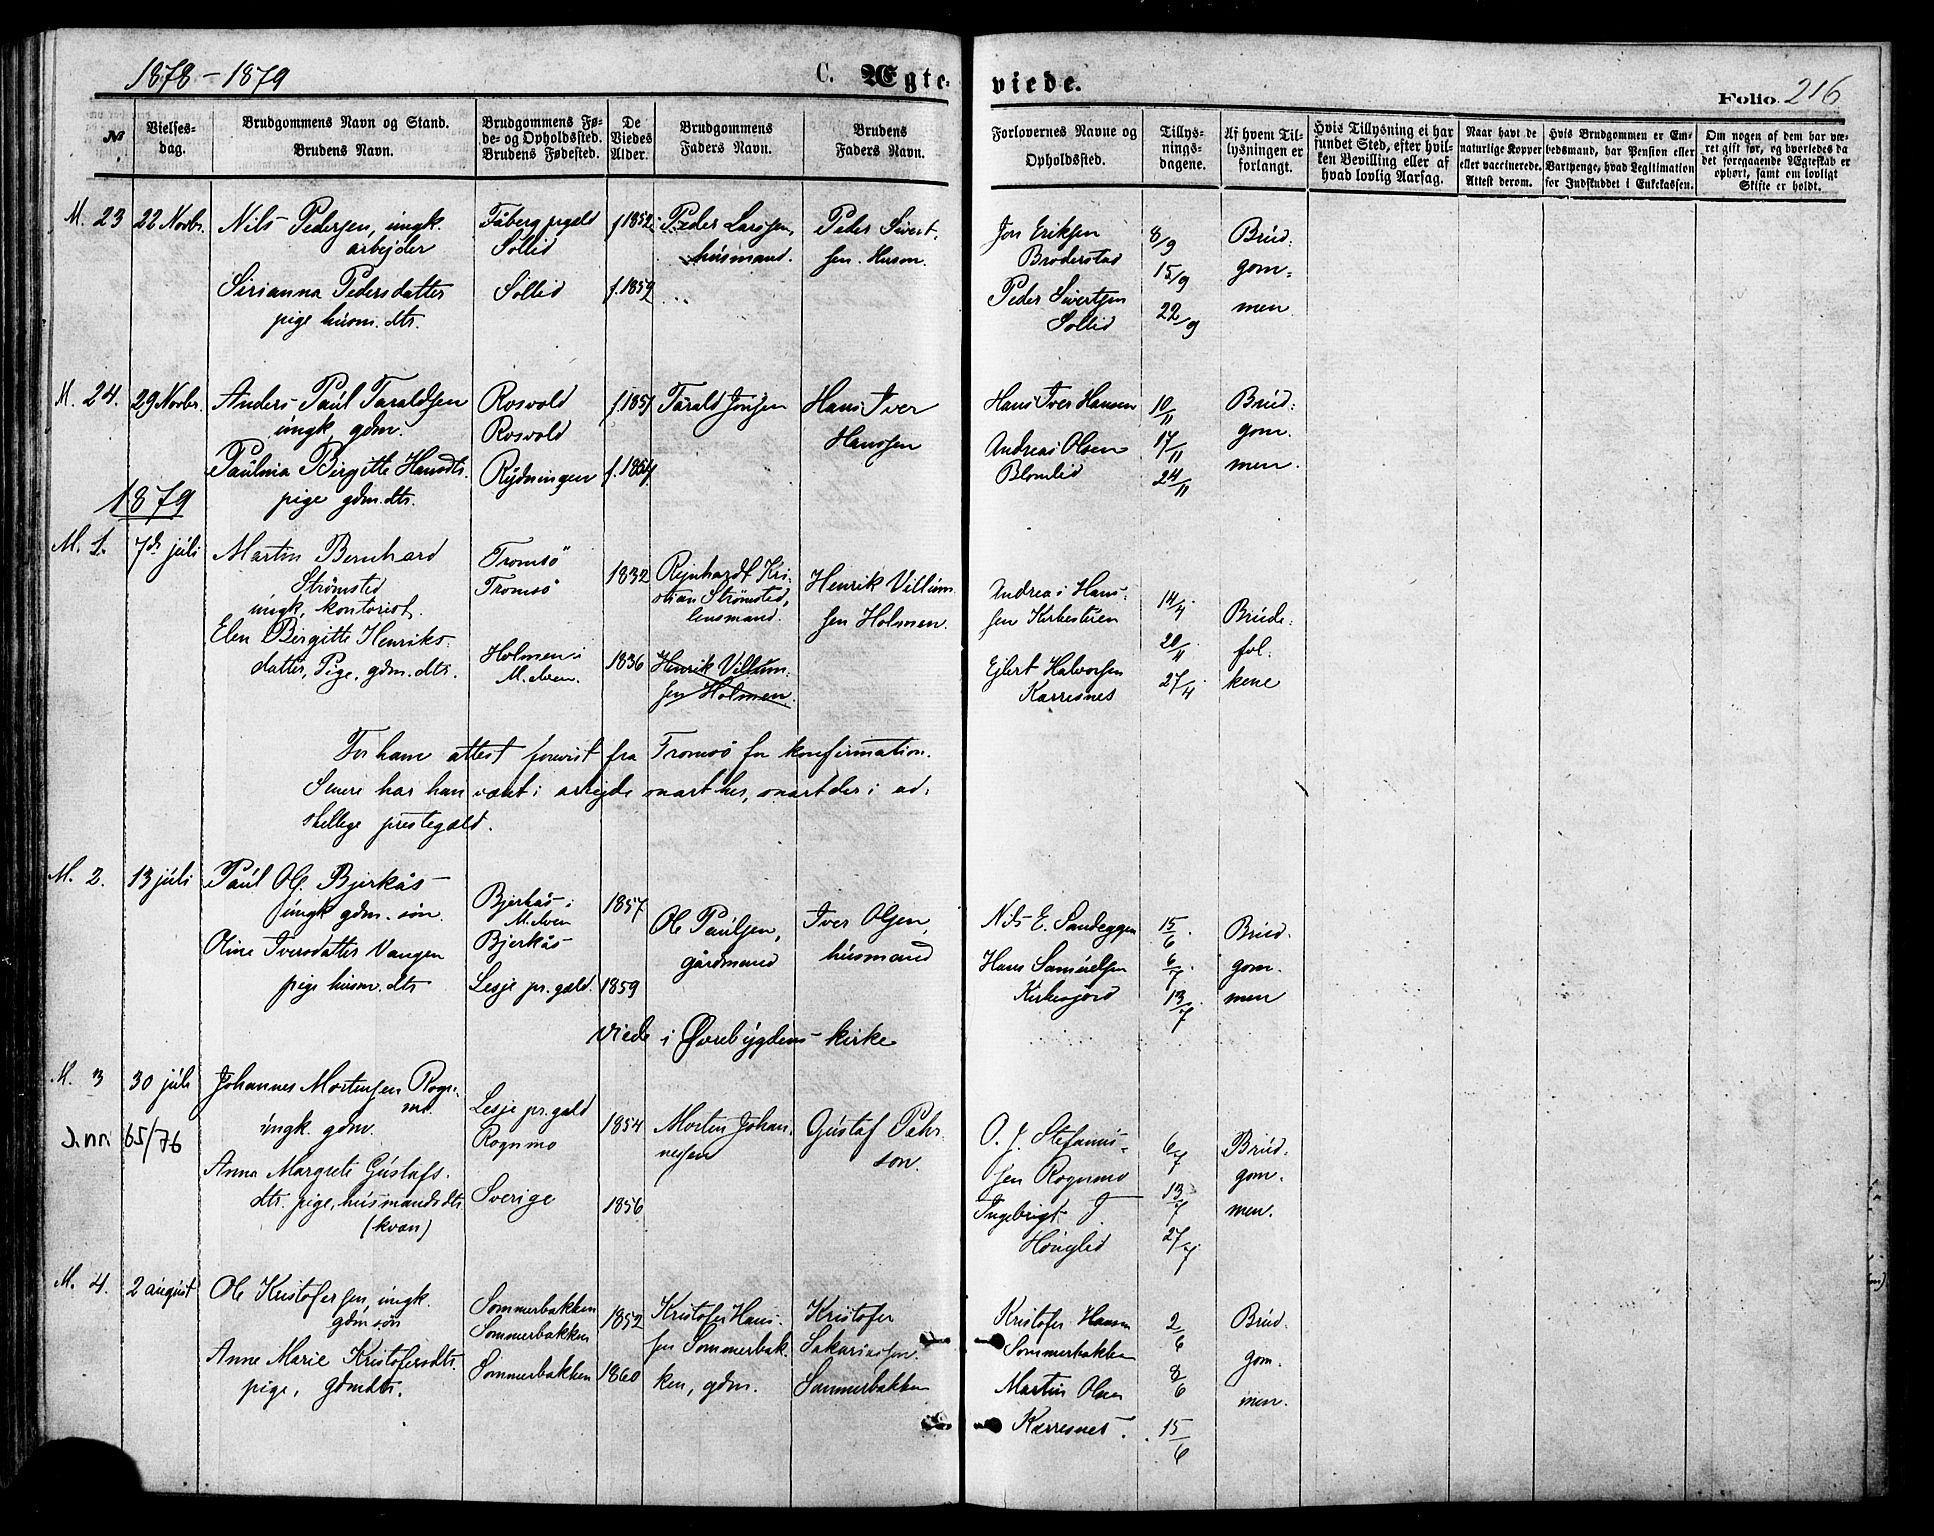 1878 - 1879
C. Ægte-
viede.
Folio 216
№
Vielses-
dag.
Brudgommens Navn og Stand.
Brudens Navn.
Brudgommens Fø-
de- og Opholdssted.
Brudens Fødested.
De
Viedes
Alder.
Brudgommens
Faders Navn.
Brudens
Faders Navn.
Forlovernes Navne og
Opholdssted.
Tillys-
nings-
dagene.
Af hvem Til-
lysningen er
forlangt.
Hvis Tillysning ei har
fundet Sted, efter hvil-
ken Bevilling eller af
hvad lovlig Aarsag.
Naar havt de
naturlige Kopper
eller vaccinerede.
Attest derom.
Hvis Brudgommen er Em-
bedsmand, har Pension eller
Vartpenge, hvad Legitimation
for Indskuddet i Enkekassen.
Om nogen af dem har væ-
ret gift før, og hvorledes da
det foregaaende Ægteskab er
ophørt, samt om lovligt
Skifte er holdt.
M. 23
22 Novbr.
Nils Pedersen, ungk.
arbejder
Sirianna Pedersdatter
pige husm. dtr.
Fåberg prgæld
Sollid
Sollid
f 1852
f. 1859
Peder Larssen,
husmand.
Peder Sivert-
sen. Husm.
Jon Eriksen
Broderstad
Peder Sivertsen
Sollid
8/9
15/9
22/9
Brud-
gom-
men
M. 24.
29 Novbr.
Anders Paul Taraldsen
ungk, gdm.
Paulina Birgitte Hansdtr.
pige gdm. dtr.
Rosvold
Rosvold
Rydningen
f. 1851
f. 1854
Tarald Jonsen
Hans Iver
Hanssen
Hans Iver Hansen
Andreas Olsen
Blomlid
10/11
17/11
24/11
Brud-
gom.
men.
1879
M. 1.
7de juli
Martin Bernhard
Strømsted
ungk, kontorist.
Elen Birgitte Henriks-
datter, Pige, gdm. dtr.
Tromsö
Tromsö
Holmen i
M.elven.
1832
1836
Rejnhardt Kri-
stian Strømsted,
lensmand.
Henrik Villum-
sen Holmen.
Henrik Villum-
sen Holmen.
Andreas Hans-
sen Kirkesteien
Ejlert Halvorsen
Karresnes
14/4
20/4
27/4
Brude-
fol-
kene
For ham attest forevist fra Tromsö for konfirmation.
Senere har han været i arbejde snart her, snart der i ad-
skellige prestegæld.
M. 2.
13 juli
Paul Ol. Bjerkås
ungk gdm. sön.
Oline Iversdatter Vangen
pige husm. dtr
Bjerkås i
M.elven
Bjerkås
Lesje pr. gæld.
1857
1859
Ole Paulsen,
gårdmand
Iver Olsen,
husmand
Nils E. Sandeggen
Hans Samuelsen
Kirkesjord
15/6
6/7
13/7
Brud-
gom-
men
viede i Øvrebygdens kirke
M. 3
30 juli
J.nr. 65/76
Johannes Mortensen Rogn-
mo
ungk. gdm.
Anna Margrete Gustafs-
dtr. pige, husmandsdtr.
(kvæn)
Lesje pr. gæld
Rognmo
Sverige
1854
1856
Morten Johan-
nessen
Gustaf Pehr-
son.
O. J. Stefanus-
sen Rognmo
Ingebrigt J.
Hönglid
6/7
13/7
27/7
Brud-
gom-
men.
M. 4.
2 august
Ole Kristofersen, ungk.
gdm sön
Anne Marie Kristofersdtr.
pige, gdmdtr.
Sommerbakken
Sommerbakken
Sommerbakken
1852
1860
Kristofer Hans-
sen Sommerbak-
ken, gdm.
Kristofer
Sakariassen.
Sommerbakken
Kristofer Hansen
Sommerbakken
Martin Olsen
Karresnes.
2/6
8/6
15/6
Brud-
gom-
men.